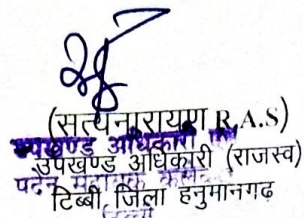 (सत्यनारायण R.A.S)
उपखण्ड अधिकारी
उपखण्ड अधिकारी (राजस्व)
पदेन सहायक
टिब्बी, जिला हनुमानगढ़